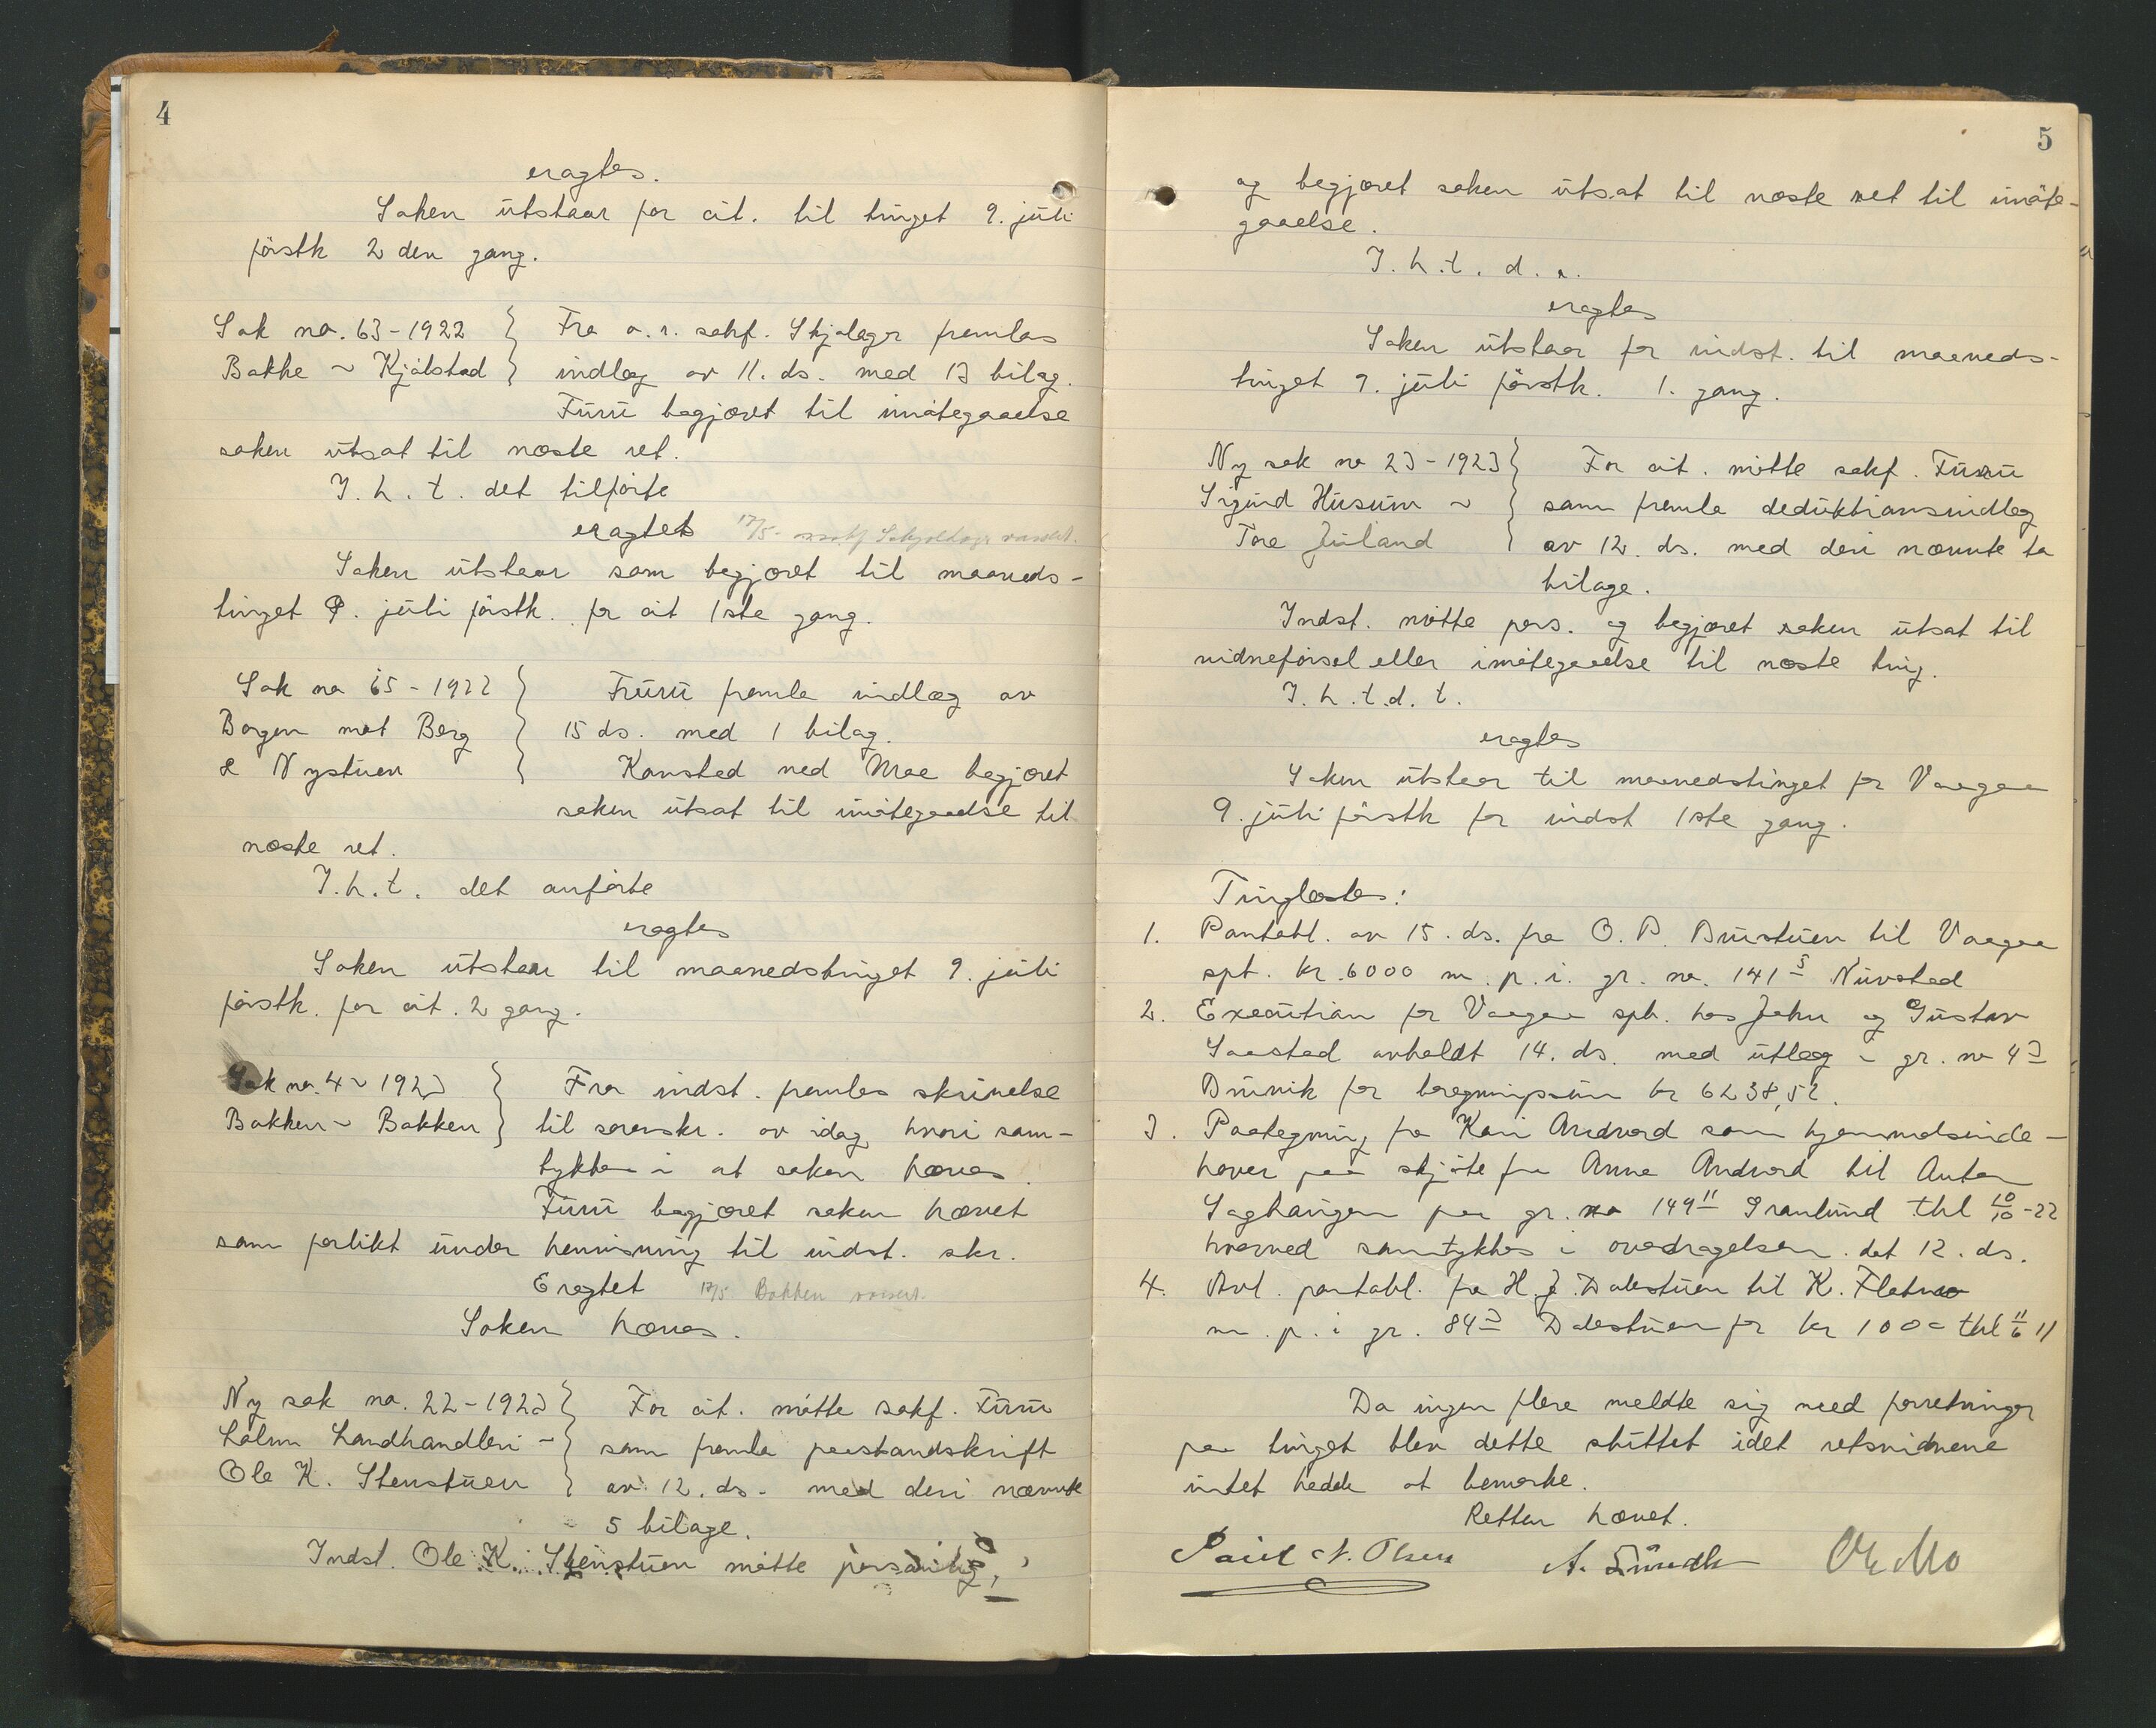 4
eragtes.
Saken utstaar for cit. til tinget 9. juli
førstk 2 den gang.
Sak no. 63-1922 } Fra o.r. sakf. Skjølager fremlas
Bakke ~ Kjølstad } indlæg av 11. ds. med 13 bilag.
Furu begjæret til imøtegaaelse
saken utsat til næste ret.
I. h. t. det tilførte
eragtet 17/5-
Saken utstaar som begjæret til maaneds-
tinget 9. juli førstk. for cit 1ste gang.
Sak no 65-1922 } Furu fremla indlæg av
Borgen mot Berg } 15 ds. med 1 bilag.
& Nystuen } Kansted ved Moe begjæret
saken utsat til imøtegaaelse til
næste ret.
I.h.t. det anførte
eragtes
Saken utstaar til maanedstinget 9. juli
førstk. for cit. 2 gang.
Sak no. 4 ~ 1923 } Fra indst. fremlas skrivelse
Bakken ~ Bakken } til sorenskr. av idag, hvori sam-
tykkes i at saken hæves.
Furu begjæret saken hævet
som forlikt under henvisning til indst. skr.
Eragtet 17/5 Bakken
Saken hæves.
Ny sak no. 22-1923 } For cit. møtte sakf. Furu
Lalm Landhandleri ~ } som fremla paastandskrift
Ole K. Stenstuen } av 12. ds. med deri nævnte
5 bilage.
Indst. Ole K. Stenstuen møtte personlig,
5
og begjæret saken utsat til næste ret til imøte-
gaaelse.
I. h. t. d. a.
eragtes
Saken utstaar for indst. til maaneds-
tinget 9. juli førstk. 1. gang.
Ny sak no 23-1923 } For cit. møtte sakf. Furu
Sigurd Husum ~ } som fremla deduktionsindlæg
Tore Juland } av 12. ds. med deri nævnte to
bilage.
Indst. møtte pers. og begjæret saken utsat til
vidneførsel eller imøtegaaelse til næste ting.
I. h. t. d. t.
eragtes
Saken utstaar til maanedstinget for Vaagaa
9. juli førstk for indst 1ste gang.
Tinglæstes:
1. Pantobl. av 15. ds. fra O. P. Bustuen til Vaagaa
spb. kr. 6000 m. p. i. gr. no. 141 5 Nuvstad
2. Execution for Vaagaa spb. hos John og Gustav
Saastad avholdt 14. ds. med utlæg i gr. no 4 3
for beregningssum kr 6238,52.
3. Paategning fra Kari Andvord som hjemmelsinde-
haver paa skjøte fra Anne Andvord til Anton
Saghaugen paa gr. no 149 11 Granlund thl 10/10-22
hvorved samtykkes i overdragelsen. dat 12. ds.
4. Avl. pantobl. fra H. J. Dalestuen til K. Fletmo
m. p. i gr. 84 3 Dalestuen for kr 1000 thl 11/6 11
Da ingen flere meldte sig med forretninger
paa tinget blev dette sluttet idet retsvidnene
intet hadde at bemerke.
Retten hævet.
Paul N. Olsen A. Sundli O. Mo